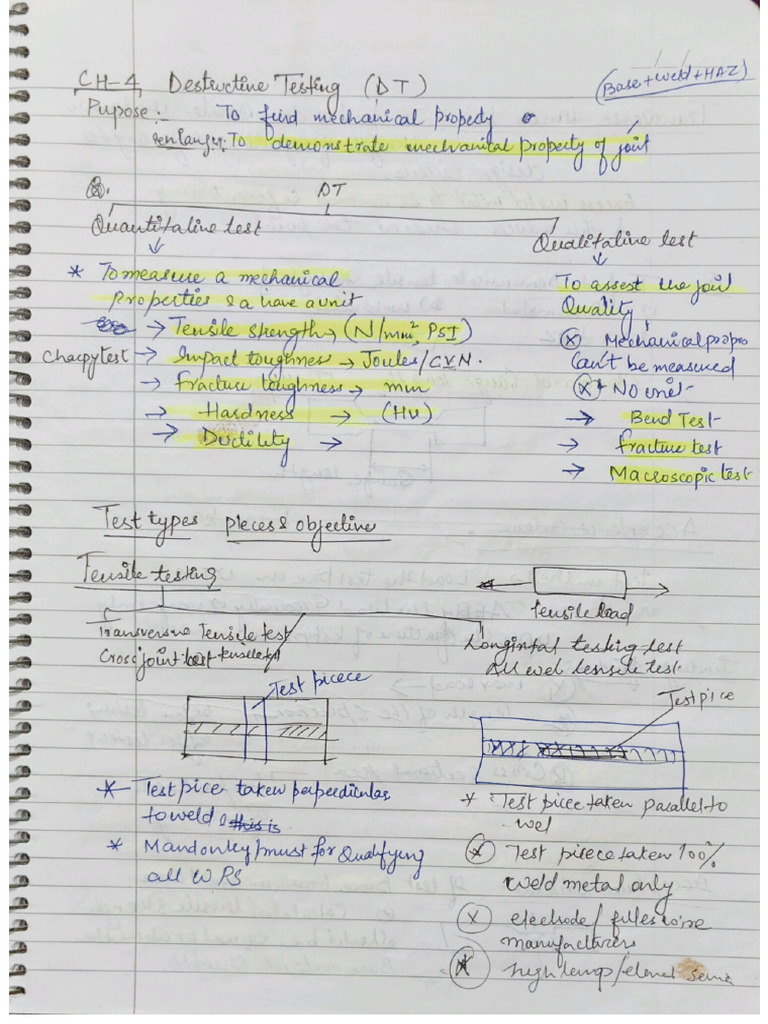 (Base+weld+HAZ)
CH-4, Destructive Testing (DT)
Pupose:- To find mechanical propedy
To demonstrate mechanital property of joint
Q. DT
Quantitative test
Qualitative test
* To measure a mechanical
Properties & a have a unit
→ Tensile strength → (N/mm², PSI)
Charpy test → Impact toughness → Joules/CVN.
→ fracture toughness → mm
→ Hardness → (HV)
→ Ductility →
To assest the joil
Quality
Mechanical propro
Can't be measured
NO unit
→ Bend Test
→ fracture test
→ Macroscopic test
Test types pieces & objective
Tensile testing
tensile load
Transverse Tensile test
Cross joint tensile
Longintal testing test
All wel tensile test
Test picece
Test pice
* Test pice taken perpedicular
to weld this is
* Mandonley/must for Qualifying
all WPS
* Test picee taken parallel to
wel
Test picece taken 100%
weld metal only
electrode/filler wire
manufacturers
high temp/